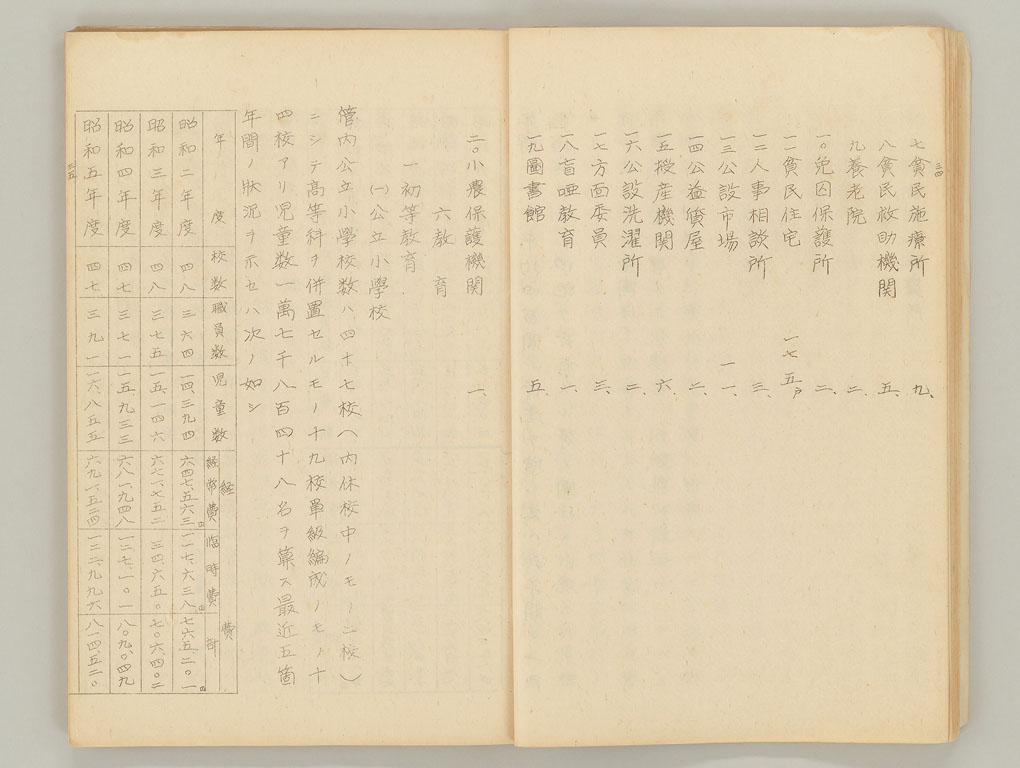 三四
七貧民施療所 九、
八貧民救助機関 五、
九養老院 二、
一〇免囚保護所 二、
一一貧民住宅 一七五戸
一二人事相談所 三、
一三公設市場 一一、
一四公益質屋 二、
一五授産機関 六、
一六公設洗濯所 二、
一七方面委員 三、
一八盲唖教育 一、
一九圖書館 五、
二〇小農保護機関 一、
六教育
一初等教育
(一)公立小學校
管内公立小學校数ハ四十七校(内休校中ノモノ二校)
ニシテ高等科ヲ併置セルモノ十九校單級編成ノモノ十
四校アリ児童数一萬七千八百四十八名ヲ算ス最近五箇
年間ノ狀況ヲ示セハ次ノ如シ
年度 校数 職員数 児童数 経費
経常費 臨時費 計
昭和二年度 四八 三六四 一四、三九四 六四七、五六三円 一一七、六三八円 七六五、二〇一円
昭和三年度 四八 三七五 一五、一四六 六七一、七五二 三四、六五〇 七〇六、四〇二
昭和四年度 四七 三七一 一五、九三三 六八一、九四八 一二七、一〇一 八〇九、〇四九
昭和五年度 四七 三九一 一六、八五五 六九一、五二四 一二二、九九六 八一四、五二〇
三五